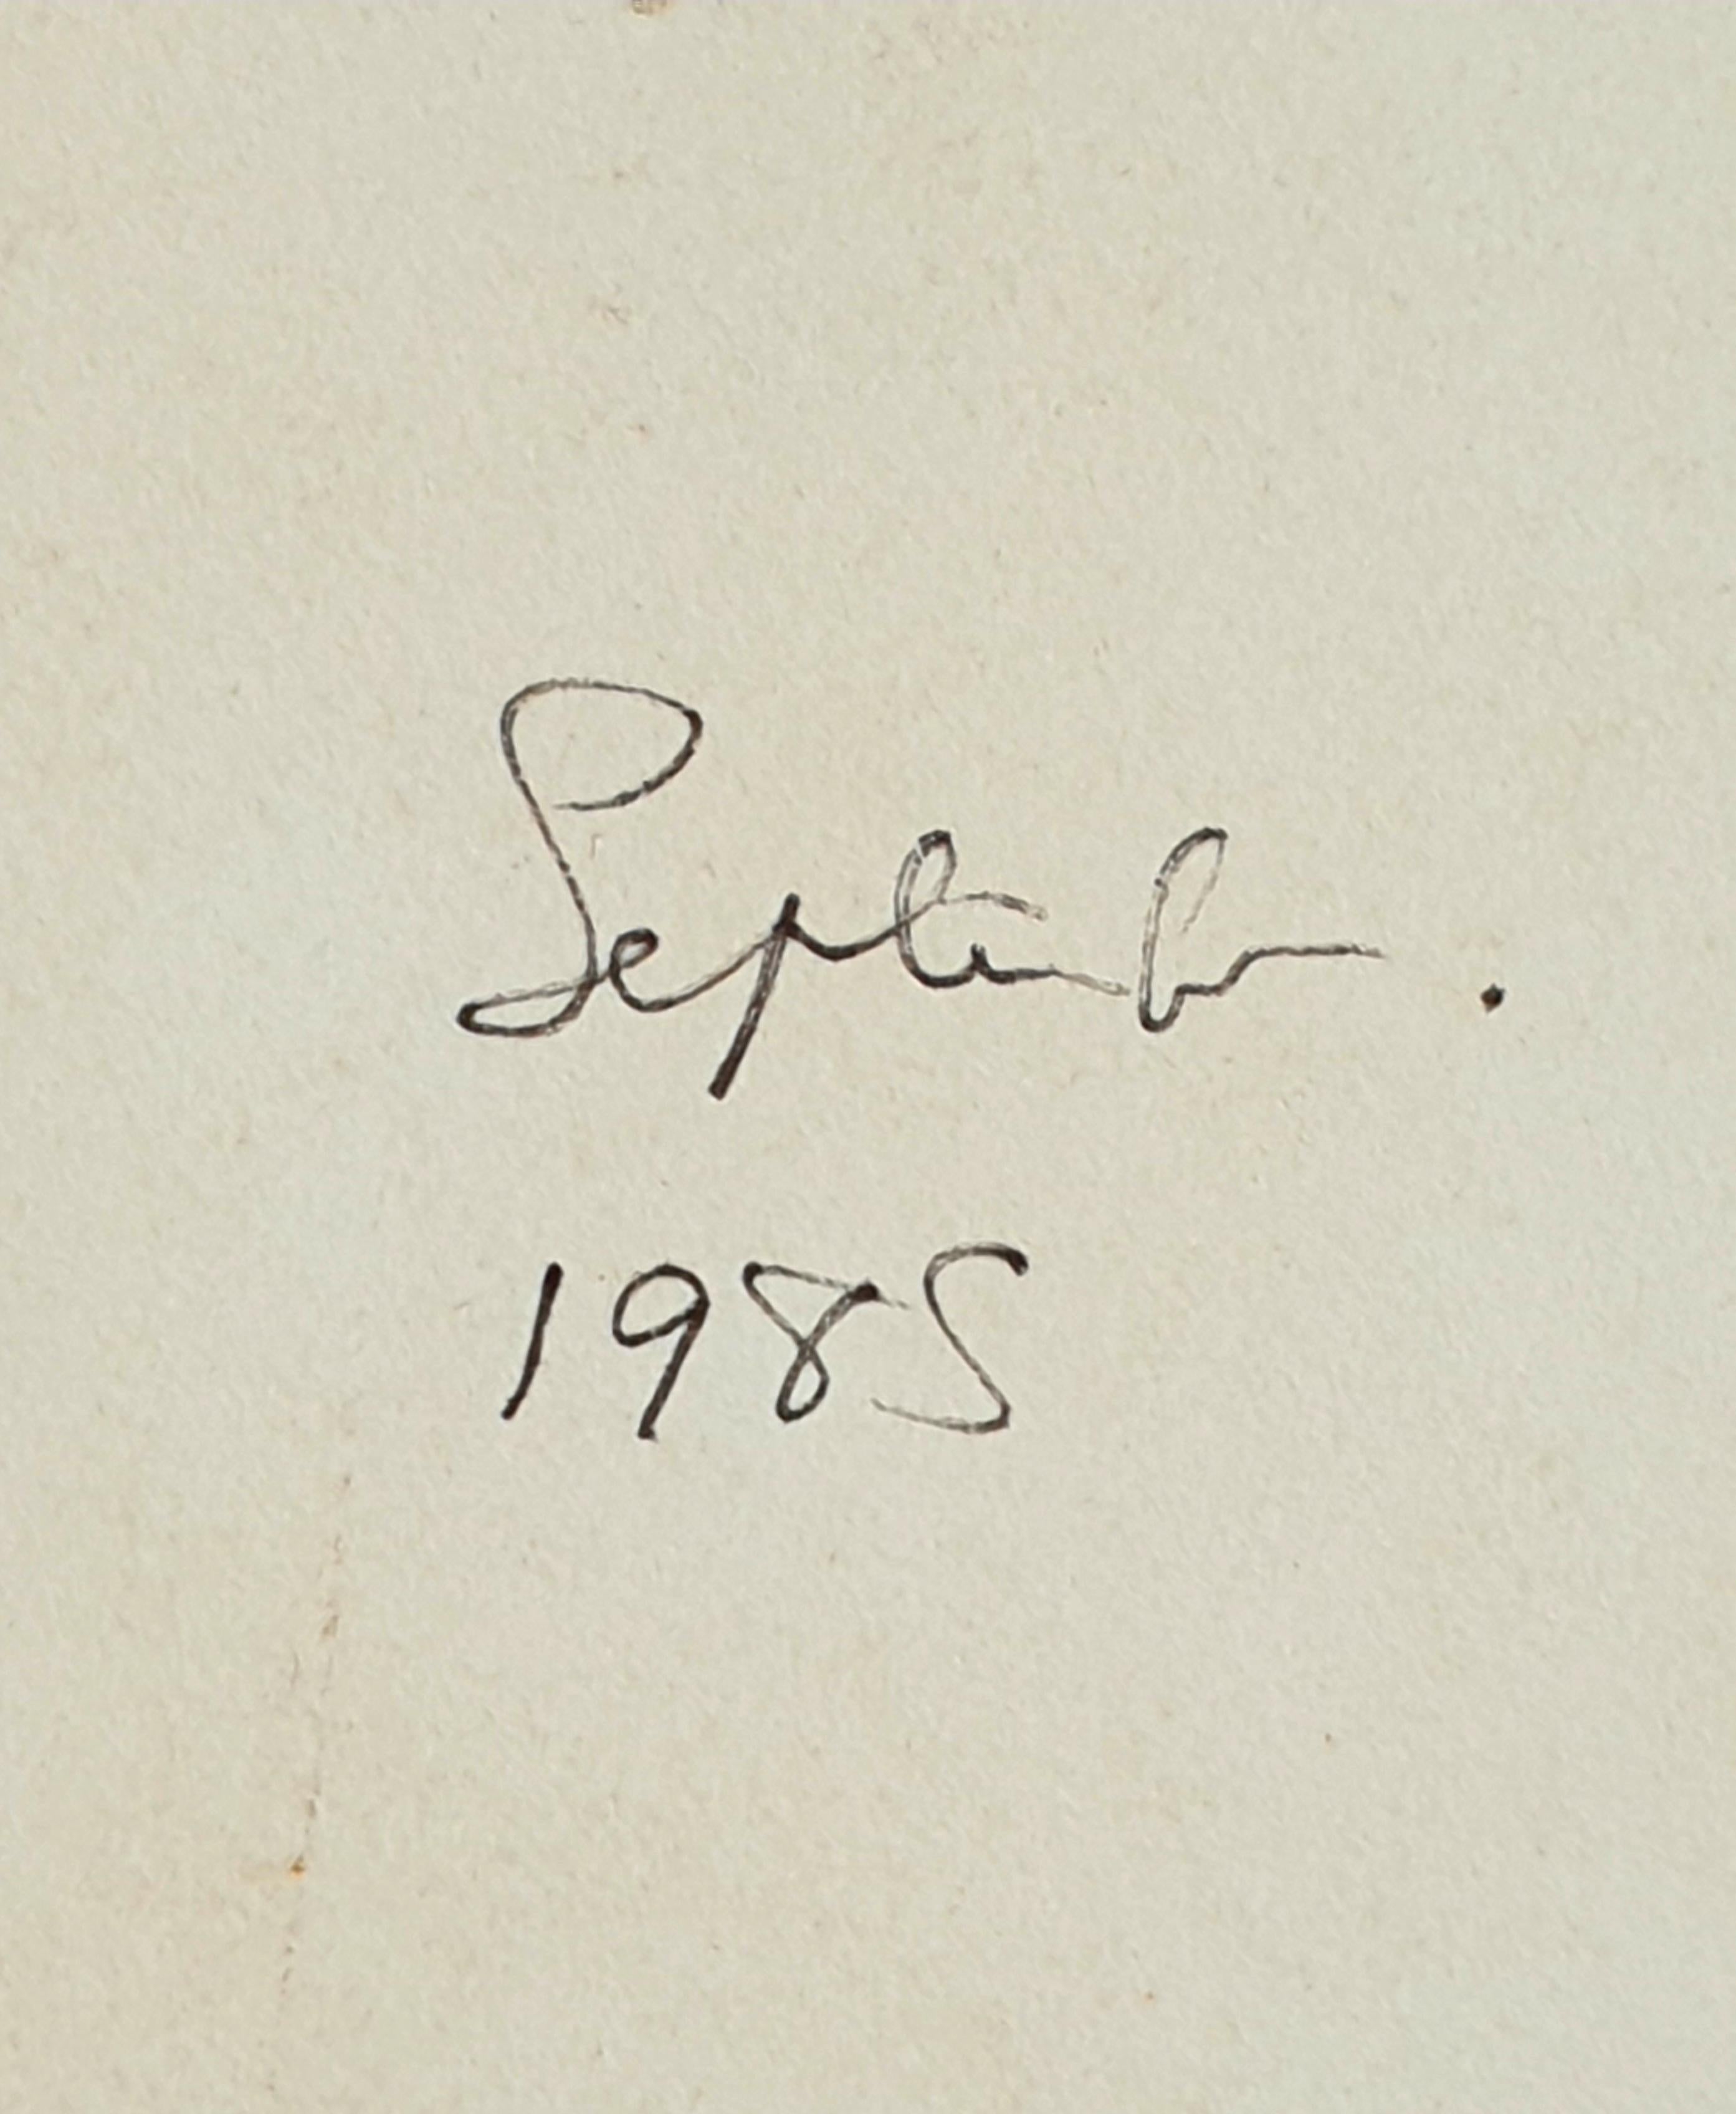 September.
1985